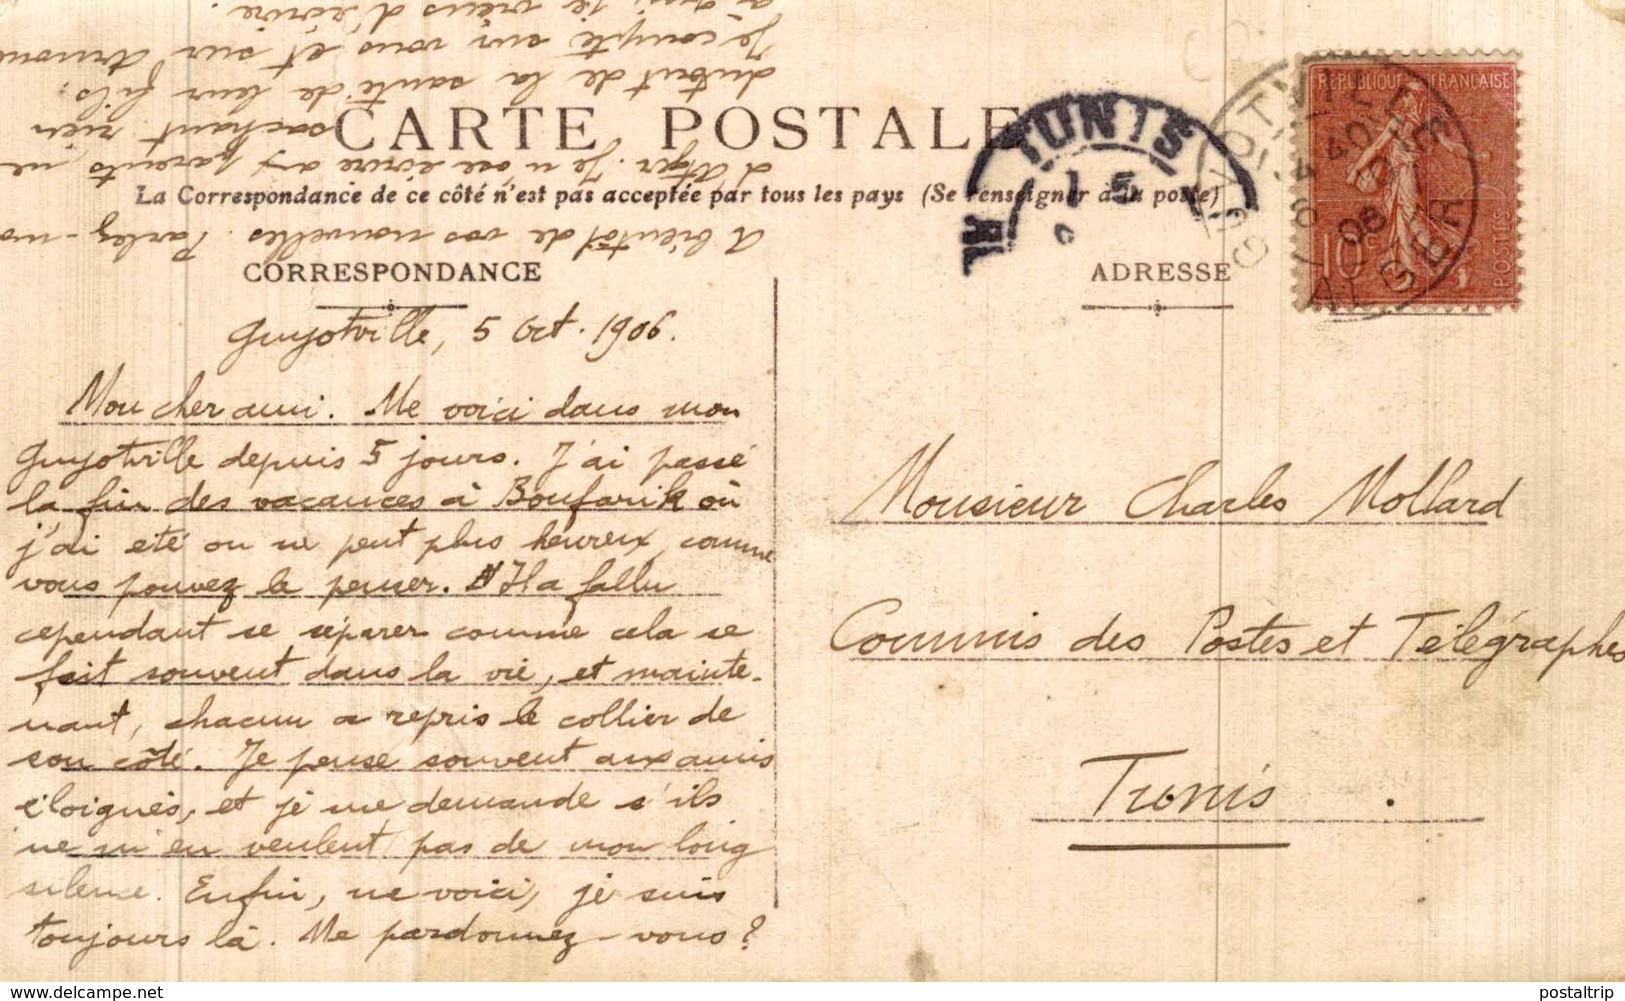 CARTE POSTALE
La Correspondance de ce côté n'est pas acceptée par tous les pays (Se renseigner à la poste)
CORRESPONDANCE
ADRESSE
RÉPUBLIQUE FRANÇAISE
10c
POSTES
TUNIS
GUYOTVILLE
ALGER
Guyotville, 5 Oct. 1906.
Mon cher ami. Me voici dans mon
Guyotville depuis 5 jours. J'ai passé
la fin des vacances à Boufarik où
j'ai été on ne peut plus heureux, comme
vous pouvez le penser. Il a fallu
cependant se séparer comme cela se
fait souvent dans la vie, et mainte-
nant, chacun a repris le collier de
son côté. Je pense souvent aux amis
éloignés, et je me demande s'ils
ne m'en veulent pas de mon long
silence. Enfin, me voici, je suis
toujours là. Me pardonnez-vous?
A bientôt de vos nouvelles. Parlez-m
d'Alger. Je n'ose écrire aux parents, ne
sachant rien
de la santé de leur fils;
Je compte sur vous et sur
à qui je viens d'écrire.
Monsieur Charles Mollard
Commis des Postes et Télégraphes
Tunis.
postaltrip